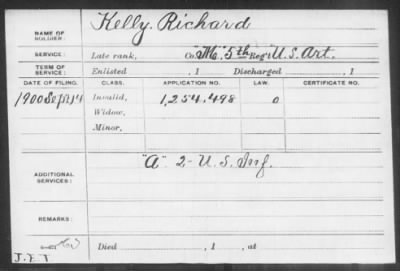 NAME OF SOLDIER: Kelly, Richard
SERVICE: Late rank, Co. "M", 5th Reg't U.S. Art.
TERM OF SERVICE: Enlisted , 1 Discharged , 1
DATE OF FILING. CLASS. APPLICATION NO. LAW. CERTIFICATE NO.
1900 Sept 14 Invalid, 1,254,498 0
Widow,
Minor,
ADDITIONAL SERVICES: "A" 2- U.S. Inf.
REMARKS:
Died , 1 , at